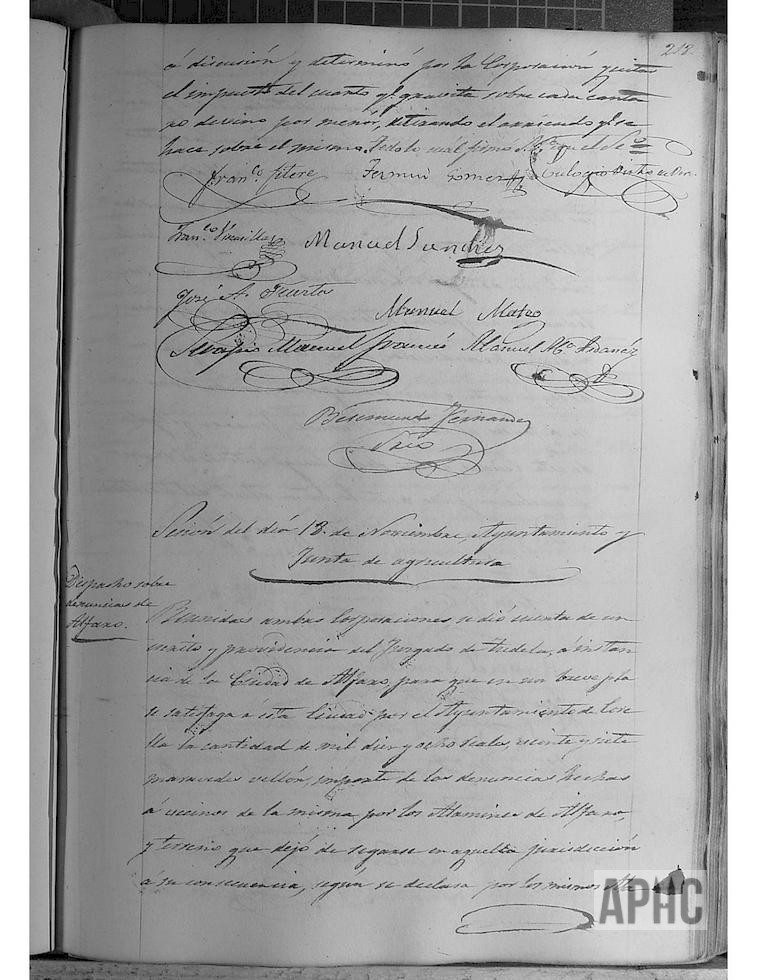 218.
á discusión y determinó por la Corporación quitar
el impuesto del cuarto qe. gravita sobre cada canta
ro de vino por menór, utizando el arriendo qe. se
hace sobre el mismo. Todo lo cual firmó
Franco. Fitere Fermin Gomez Eulogio
Franco. Manuel Sanchez
José A. Huarte
Manuel Mateo
Serapio Manuel Francés Manuel Ma.
Beremundo Fernandez
Srio
Sesión del dia 18. de Noviembre Ayuntamiento y
Junta de agricultura
Despacho sobre
denuncias de
Alfaro.
Reunidas ambas Corporaciones se dió cuenta de un
escrito y providencia del Juzgado de Tudela, á instan
cia de la Ciudad de Alfaro, para que en un breve pla
se satisfaga á esta Ciudad por el Ayuntamiento de Core
lla la cantidad de mil diez y ocho reales, veinte y siete
maravedis vellón, importe de las denuncias hechas
á vecinos de la misma por los Alamines de Alfaro,
y terreno que dejó de regarse en aquella jurisdicción
á su consecuencia, según se declara por los mismos Ala
APHC